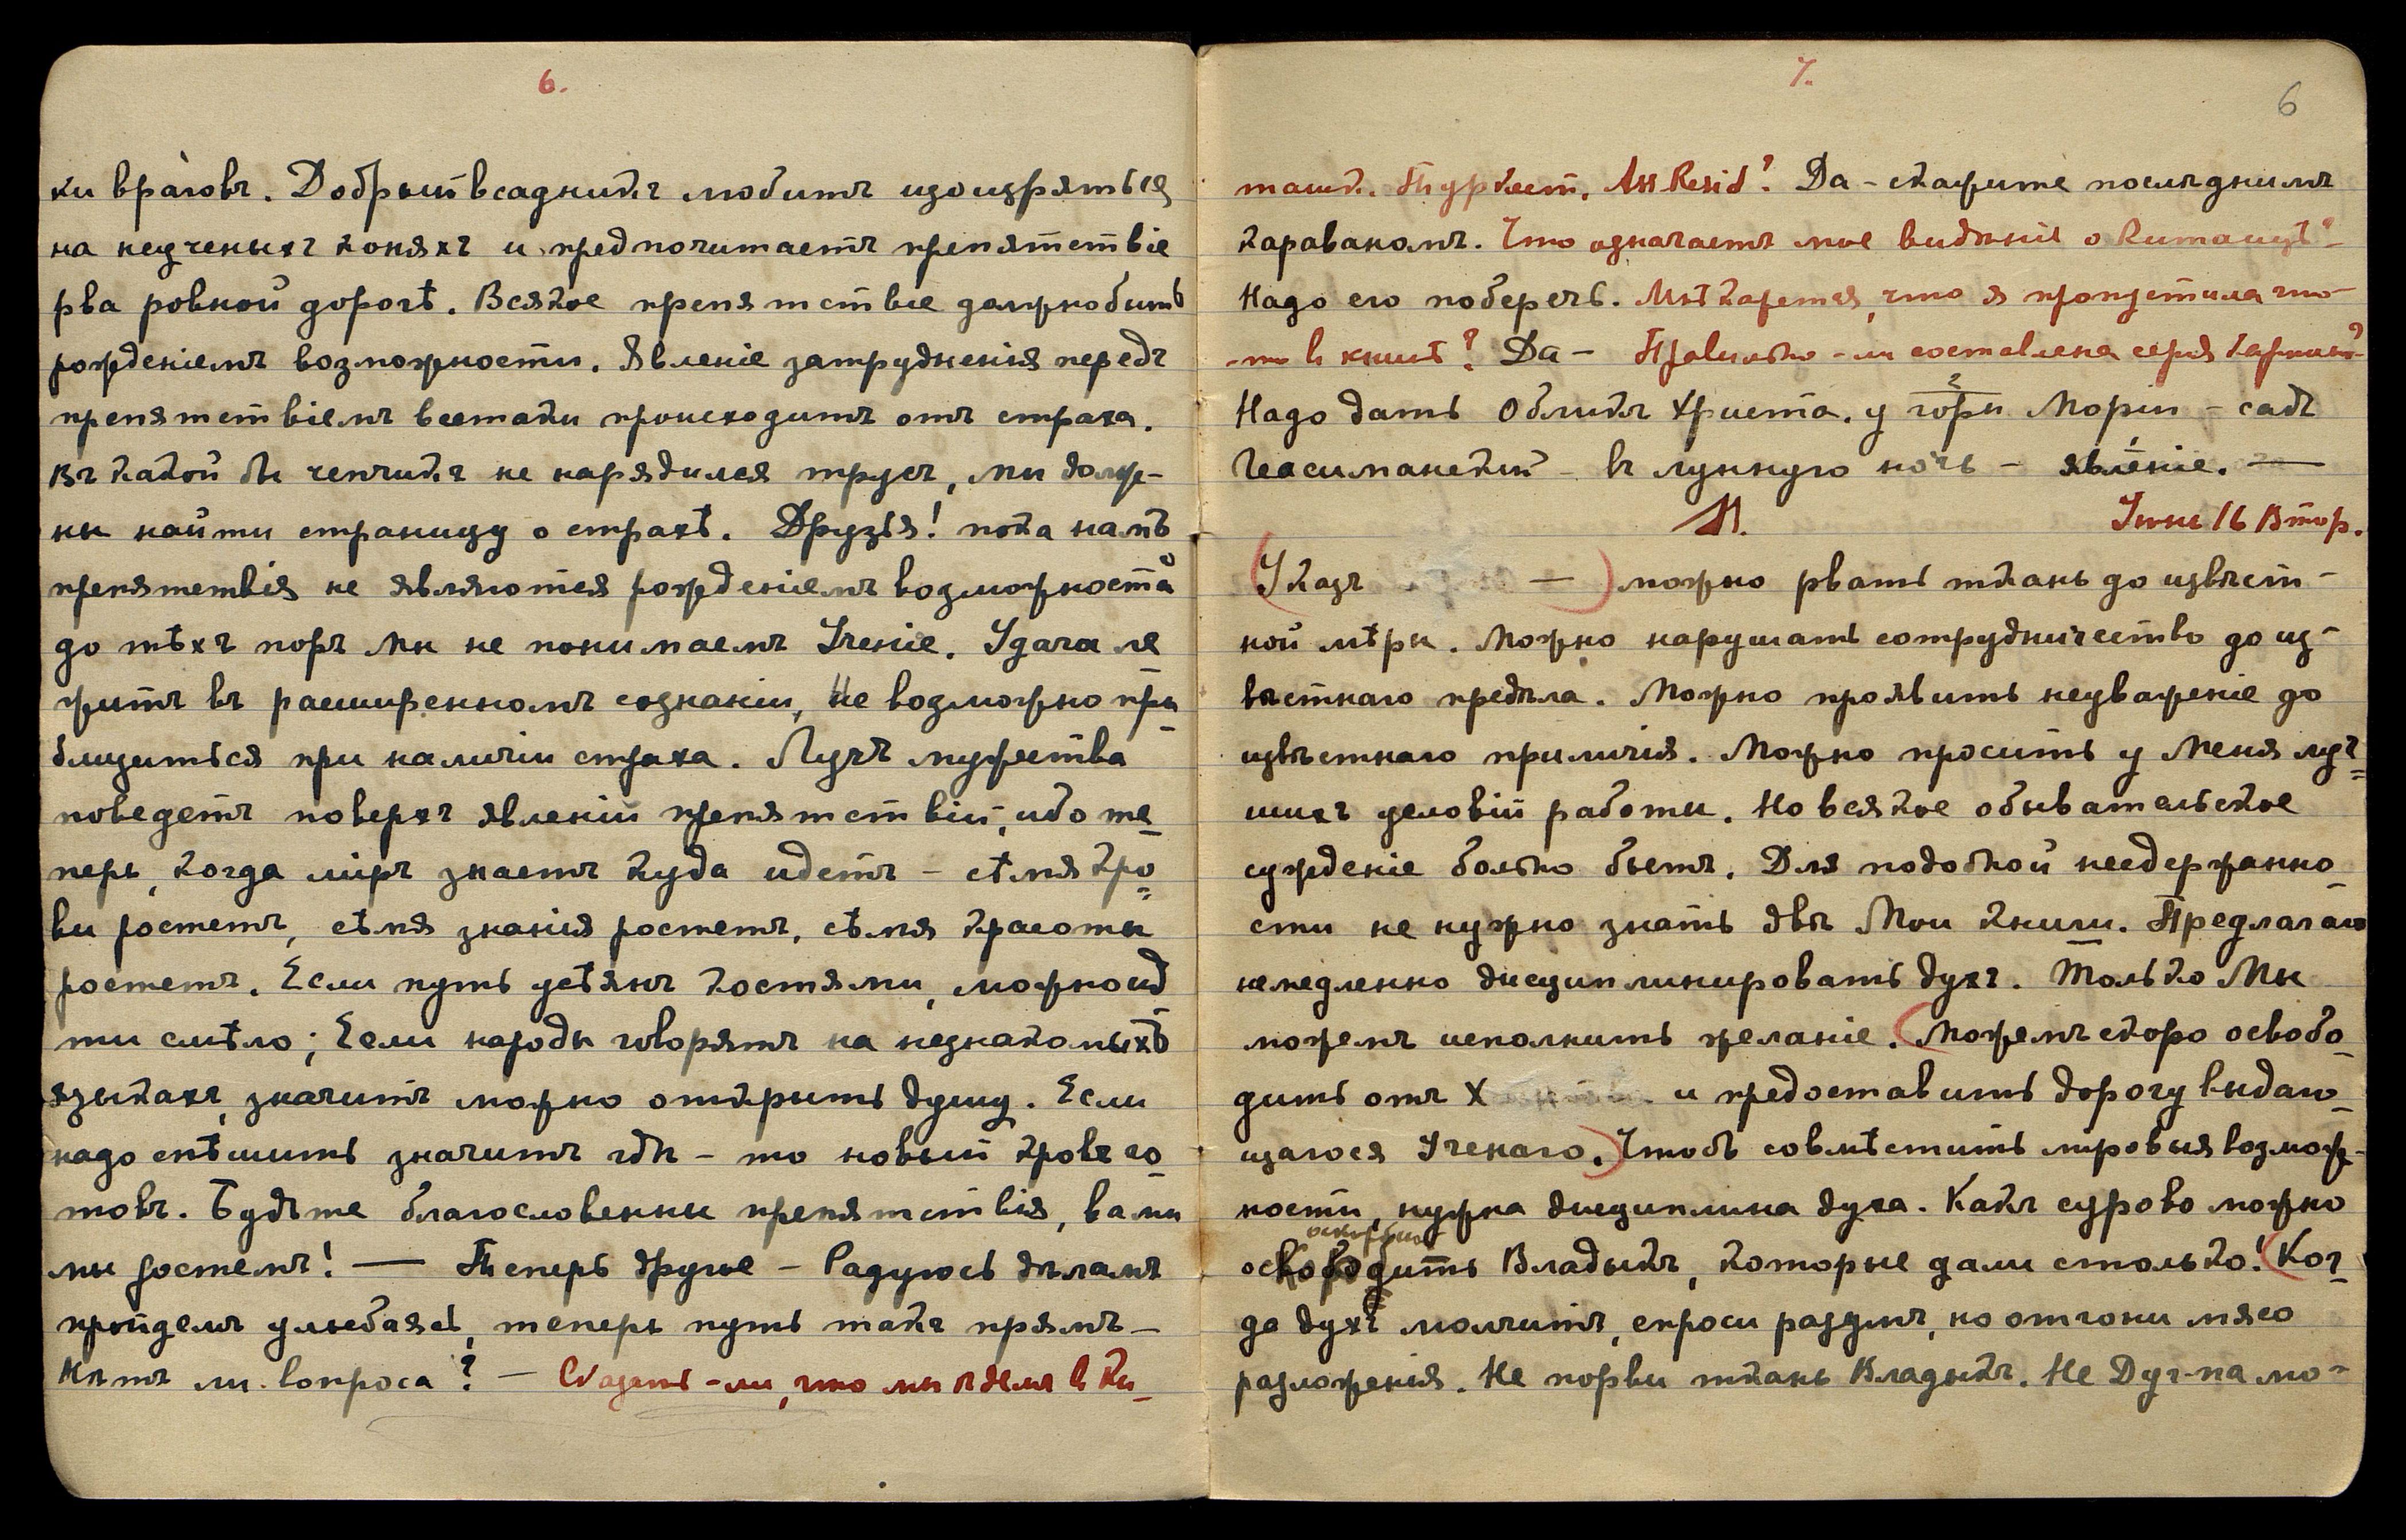 6.
ки враговъ. Добрый всадникъ любитъ изощряться
на неученыхъ коняхъ и предпочитаетъ препятствіе
рва ровной дорогѣ. Всякое препятствіе должно быть
рожденіемъ возможности. Явленіе затрудненія передъ
препятствіемъ всетаки происходитъ отъ страха.
Въ какой бы чепчикъ не нарядился трусъ, мы долж-
ны найти страницу о страхѣ. Друзья! пока намъ
препятствія не являются рожденіемъ возможностей
до тѣхъ поръ мы не понимаемъ Ученіе. Удача ле
житъ въ расширенномъ сознаніи, Не возможно при
близиться при наличіи страха. Лучъ мужества
поведетъ поверхъ явленій препятствій, ибо те
перь, когда міръ знаетъ куда идетъ - сѣмя кро
ви ростетъ, сѣмя знанія ростетъ, сѣмя красоты
ростетъ. Если путь усѣянъ костями, можно ид
ти смѣло; Если народы говорятъ на незнакомыхъ
языкахъ, значитъ можно открыть душу. Если
надо спѣшить значитъ гдѣ-то новый кровъ го
товъ. Будьте благословенны препятствія, вами
мы ростемъ! — Теперь другое - Радуюсь дѣламъ
пройдемъ улыбаясь, теперь путь такъ прямъ -
Нѣтъ ли вопроса? - Сказать-ли, что мы ѣдемъ въ Ки-
7.
6
тай. Туркест. Ass Resid? Да - скажите послѣднимъ
караваномъ. Что означаетъ мое видѣніе о Китайцѣ?
Надо его поберечь. Мнѣ кажется, что я пропустила что-
то въ книгѣ? Да - Правильно-ли составлена серія картинъ?
Надо дать Обликъ Христа. у горы Моріи - садъ
Геѳсиманскій - въ лунную ночь - явленіе. —
М. Іюнь 16 Втор.
(Указъ —) можно рвать ткань до извѣст-
ной мѣры. Можно нарушать сотрудничество до из-
вѣстнаго предѣла. Можно проявить неуваженіе до
извѣстнаго приличія. Можно просить у Меня луч
шихъ условій работы. Но всякое обывательское
сужденіе больно бьетъ. Для подобной несдержанно
сти не нужно знать двѣ Мои книги. Предлагаю
немедленно дисциплинировать духъ. Только Мы
можемъ исполнить желаніе. (Можемъ скоро освобо
дить отъ Х и предоставить дорогу выдаю
щагося Ученаго.) Чтобъ совмѣстить міровыя возмож-
ности, нужна дисциплина духа. Какъ сурово можно
оскорбить Владыкъ, которые дали столько! (Ког
да духъ молчитъ, спроси разумъ, но отгони мясо
разложенія. Не порви ткань Владыкъ. Не Дуг-па мо-